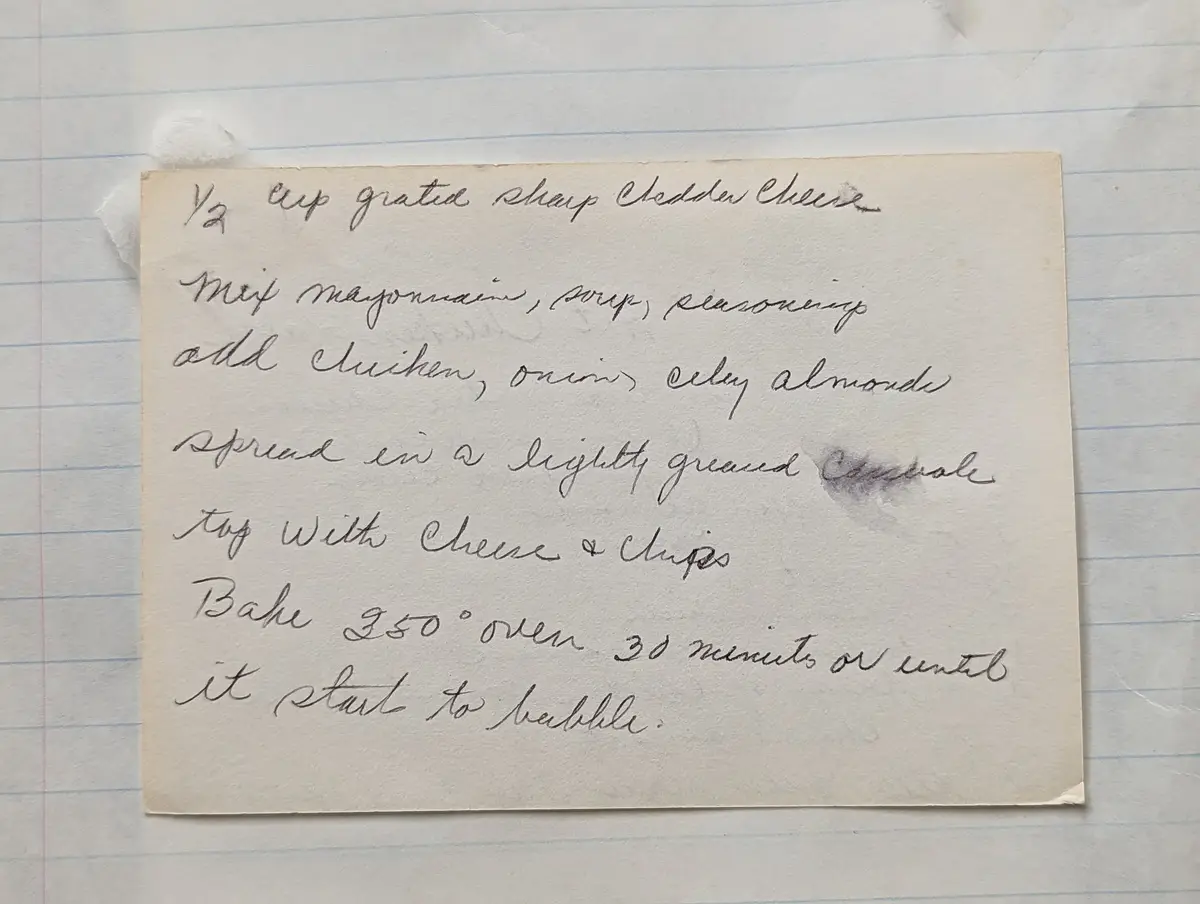 1/2 cup grated sharp Chedder Cheese
Mix mayonnaise, soup, seasoning
add chicken, onion, celey almonds
spread in a lightly greased casserole
top with cheese & chips
Bake 350° oven 30 minuts or until
it start to bubble.